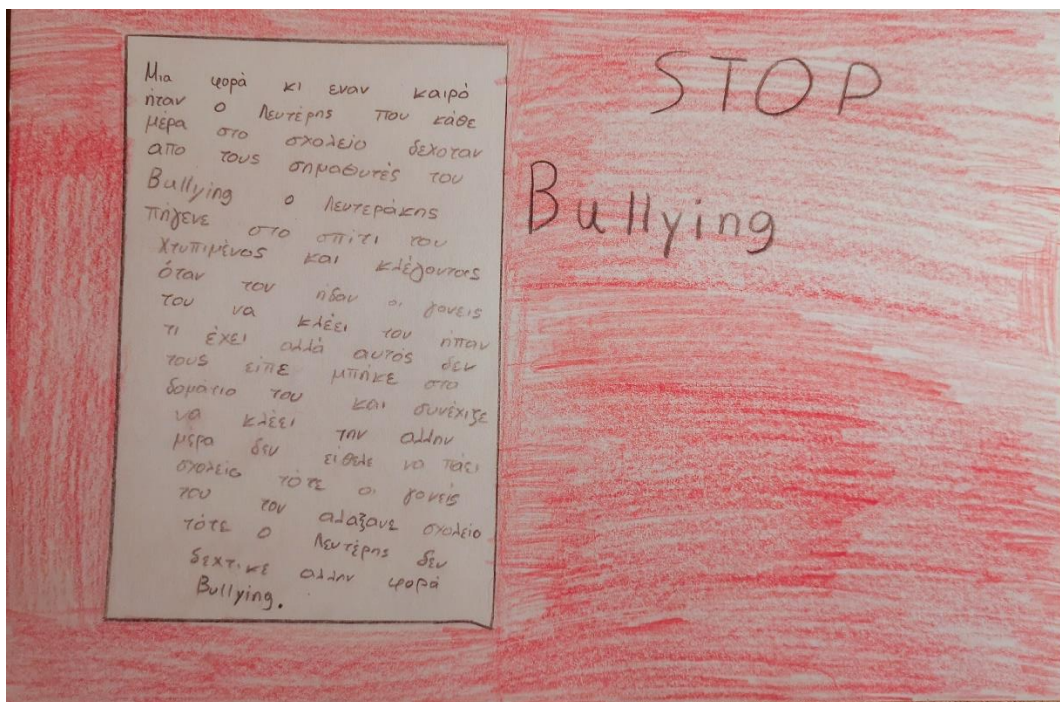 Μια φορά κι εναν καιρό
ήταν ο Λευτέρης που κάθε
μέρα στο σχολείο δεχοταν
απο τους σημαθυτές του
Bullying ο Λευτεράκης
πήγενε στο σπίτι του
χτυπιμένος και κλέγοντας
όταν τον ήδαν οι γονεις
του να κλέει του ήπαν
τι έχει αλλά αυτός δεν
τους είπε μπήκε στο
δοματιο του και συνέχιζε
να κλέει την αλλην
μέρα δεν είθελε να πάει
σχολείο τότε οι γονείς
του τον αλαξανε σχολείο
τότε ο Λευτέρης δεν
δεχτικε αλλην φορά
Bullying.
STOP
Bullying